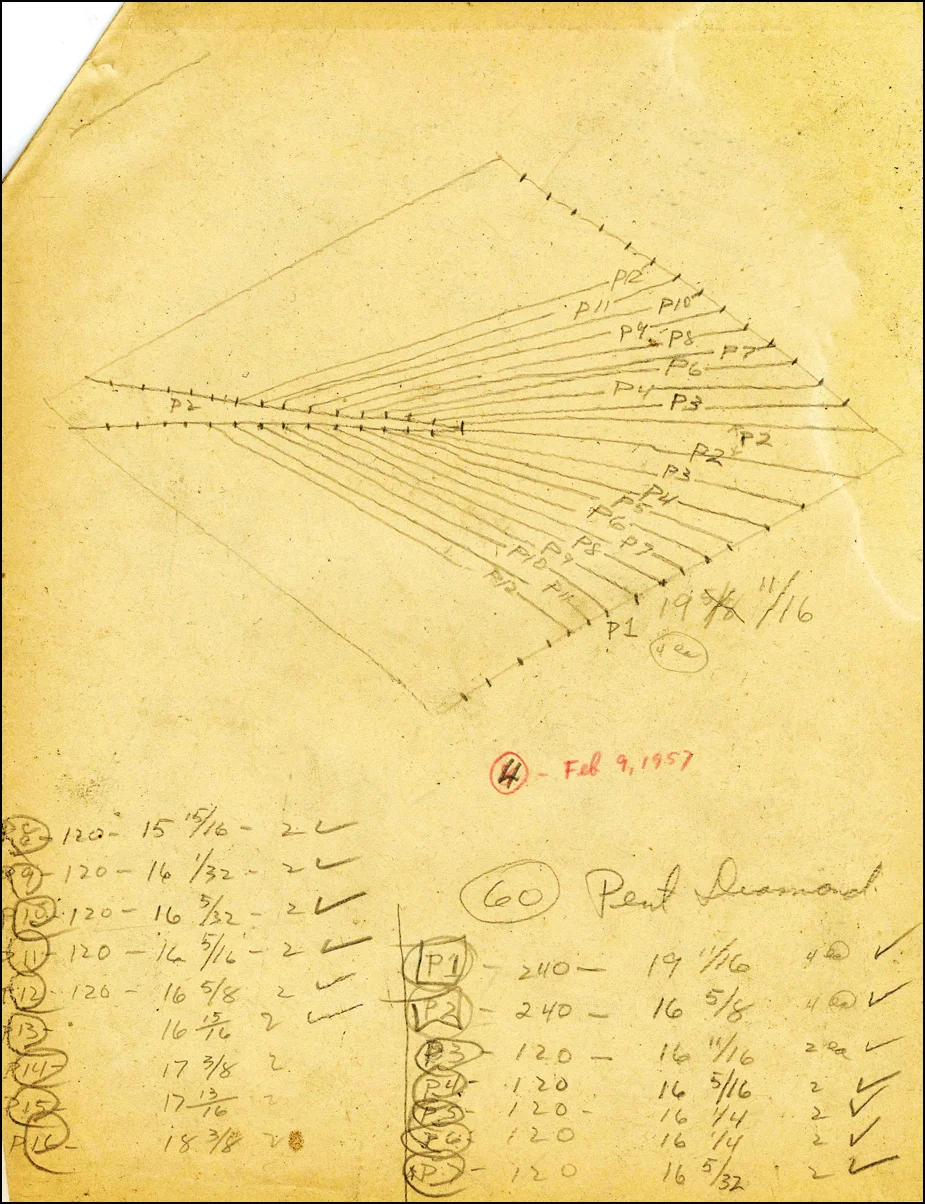 P12
P11 P10
P9 P8
P7
P6
P4
P3
P2
P2
P2
P3
P4
P5
P6
P8 P7
P9
P10
P12 P11
P1 19 5/8 11/16
4 ea
4 - Feb 9, 1957
P8 - 120 - 15 15/16 - 2 ✓
P9 - 120 - 16 1/32 - 2 ✓
P10 - 120 - 16 5/32 - 2 ✓
P11 - 120 - 16 5/16 - 2 ✓
P12 - 120 - 16 5/8 2 ✓
P13 - 16 15/16 2 ✓
P14 - 17 3/8 2
P15 - 17 13/16 2
P16 - 18 3/8 2
60 Pent Diamond
P1 - 240 - 19 11/16 4 ea ✓
P2 - 240 - 16 5/8 4 ea ✓
P3 - 120 - 16 11/16 2 ea ✓
P4 - 120 16 5/16 2 ✓
P5 - 120 - 16 1/4 2 ✓
P6 - 120 16 1/4 2 ✓
P7 - 120 16 5/32 2 ✓